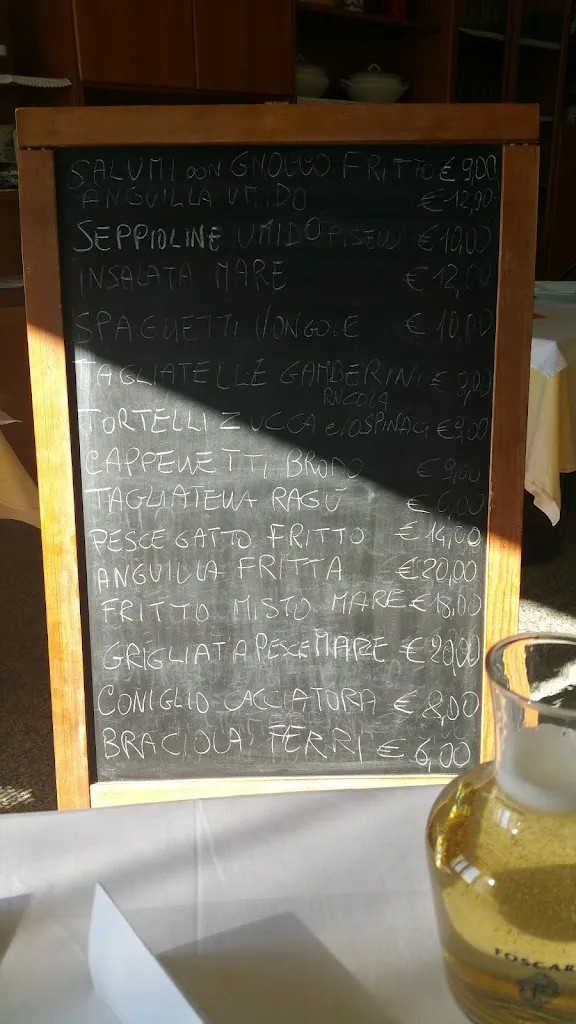 SALUMI CON GNOCCO FRITTO € 9,00
ANGUILLA UMIDO € 12,00
SEPPIOLINE UMIDO PISELLI € 10,00
INSALATA MARE € 12,00
SPAGHETTI VONGOLE € 10,00
TAGLIATELLE GAMBERINI € 8,00
RUCOLA
TORTELLI ZUCCA e/o SPINACI € 9,00
CAPPELLETTI BRODO € 9,00
TAGLIATELLA RAGÙ € 6,00
PESCE GATTO FRITTO € 14,00
ANGUILLA FRITTA € 20,00
FRITTO MISTO MARE € 18,00
GRIGLIATA PESCE MARE € 20,00
CONIGLIO CACCIATORA € 8,00
BRACIOLA FERRI € 6,00